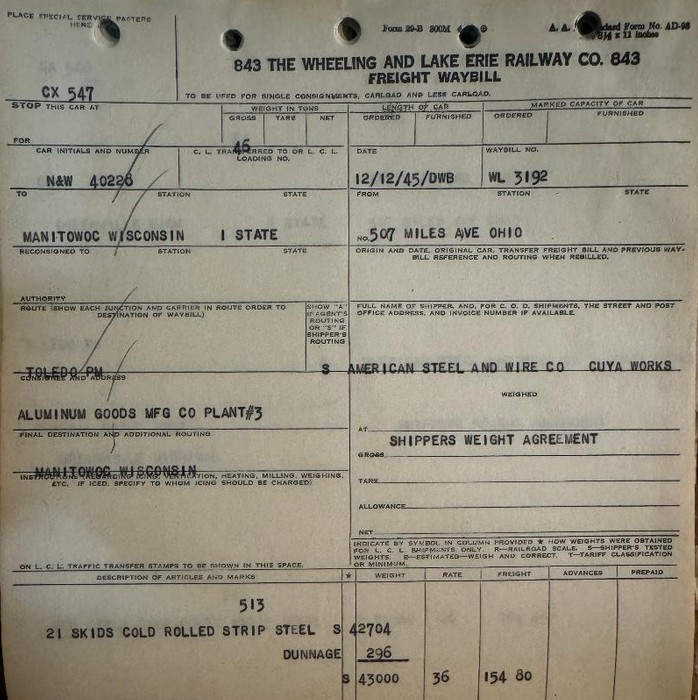 PLACE SPECIAL SERVICE PASTERS
HERE
Form 29-B 300M
A. A. Standard Form No. AD-98
8½ x 11 inches
843 THE WHEELING AND LAKE ERIE RAILWAY CO. 843
FREIGHT WAYBILL
CX 547
TO BE USED FOR SINGLE CONSIGNMENTS, CARLOAD AND LESS CARLOAD.
STOP THIS CAR AT
WEIGHT IN TONS
LENGTH OF CAR
MARKED CAPACITY OF CAR
GROSS TARE NET
ORDERED FURNISHED
ORDERED FURNISHED
FOR
46
CAR INITIALS AND NUMBER
C. L. TRANSFERRED TO OR L. C. L.
LOADING NO.
DATE
WAYBILL NO.
N&W 40226
12/12/45/DWB
WL 3192
TO STATION STATE
FROM STATION STATE
MANITOWOC WISCONSIN I STATE
NO. 507 MILES AVE OHIO
RECONSIGNED TO STATION STATE
ORIGIN AND DATE, ORIGINAL CAR, TRANSFER FREIGHT BILL AND PREVIOUS WAY-
BILL REFERENCE AND ROUTING WHEN REBILLED.
AUTHORITY
ROUTE (SHOW EACH JUNCTION AND CARRIER IN ROUTE ORDER TO
DESTINATION OF WAYBILL)
SHOW "A"
IF AGENT'S
ROUTING
OR "S" IF
SHIPPER'S
ROUTING
FULL NAME OF SHIPPER, AND, FOR C. O. D. SHIPMENTS, THE STREET AND POST
OFFICE ADDRESS, AND INVOICE NUMBER IF AVAILABLE.
TOLEDO PM S
AMERICAN STEEL AND WIRE CO CUYA WORKS
CONSIGNEE AND ADDRESS
WEIGHED
ALUMINUM GOODS MFG CO PLANT#3
AT
SHIPPERS WEIGHT AGREEMENT
FINAL DESTINATION AND ADDITIONAL ROUTING
GROSS
MANITOWOC WISCONSIN
INSTRUCTIONS (REGARDING ICING, VENTILATION, HEATING, MILLING, WEIGHING,
ETC. IF ICED, SPECIFY TO WHOM ICING SHOULD BE CHARGED)
TARE
ALLOWANCE
NET
INDICATE BY SYMBOL IN COLUMN PROVIDED ★ HOW WEIGHTS WERE OBTAINED
FOR L. C. L SHIPMENTS ONLY. R—RAILROAD SCALE. S—SHIPPER'S TESTED
WEIGHTS. E—ESTIMATED—WEIGH AND CORRECT. T—TARIFF CLASSIFICATION
OR MINIMUM.
ON L. C. L. TRAFFIC TRANSFER STAMPS TO BE SHOWN IN THIS SPACE.
DESCRIPTION OF ARTICLES AND MARKS ★ WEIGHT RATE FREIGHT ADVANCES PREPAID
513
21 SKIDS COLD ROLLED STRIP STEEL S 42704
DUNNAGE 296
S 43000 36 154 80